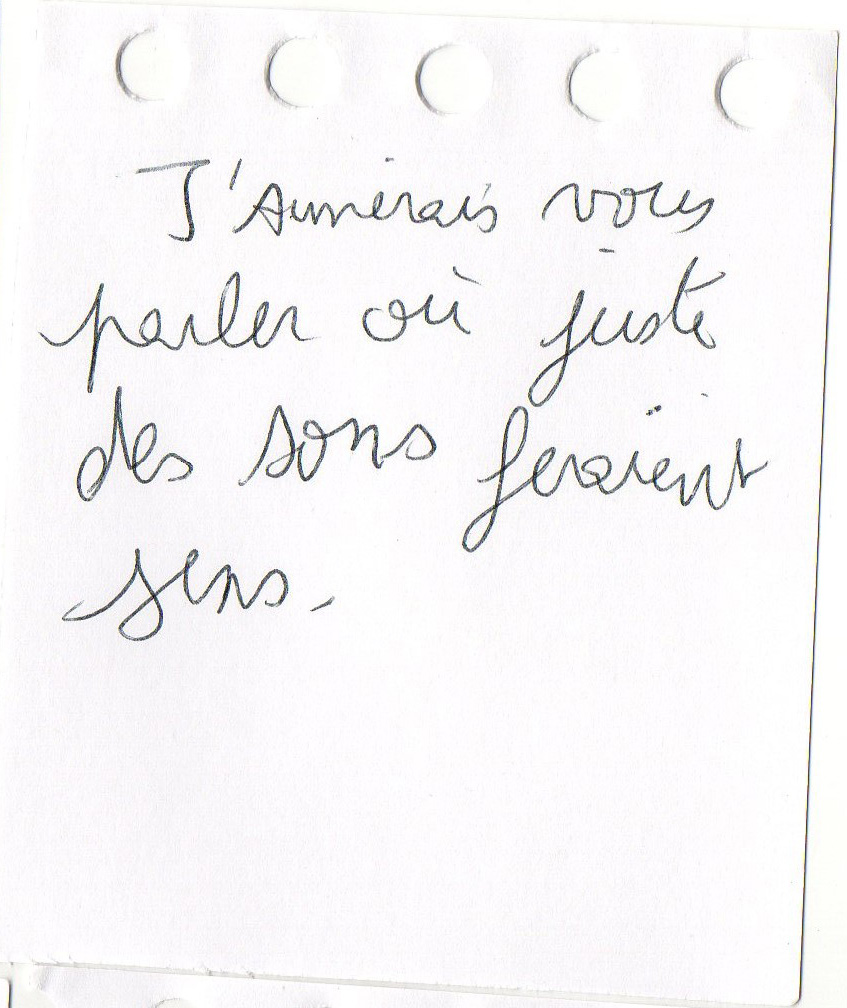 J'aimerais vous
parler où juste
des sons feraient
sens.